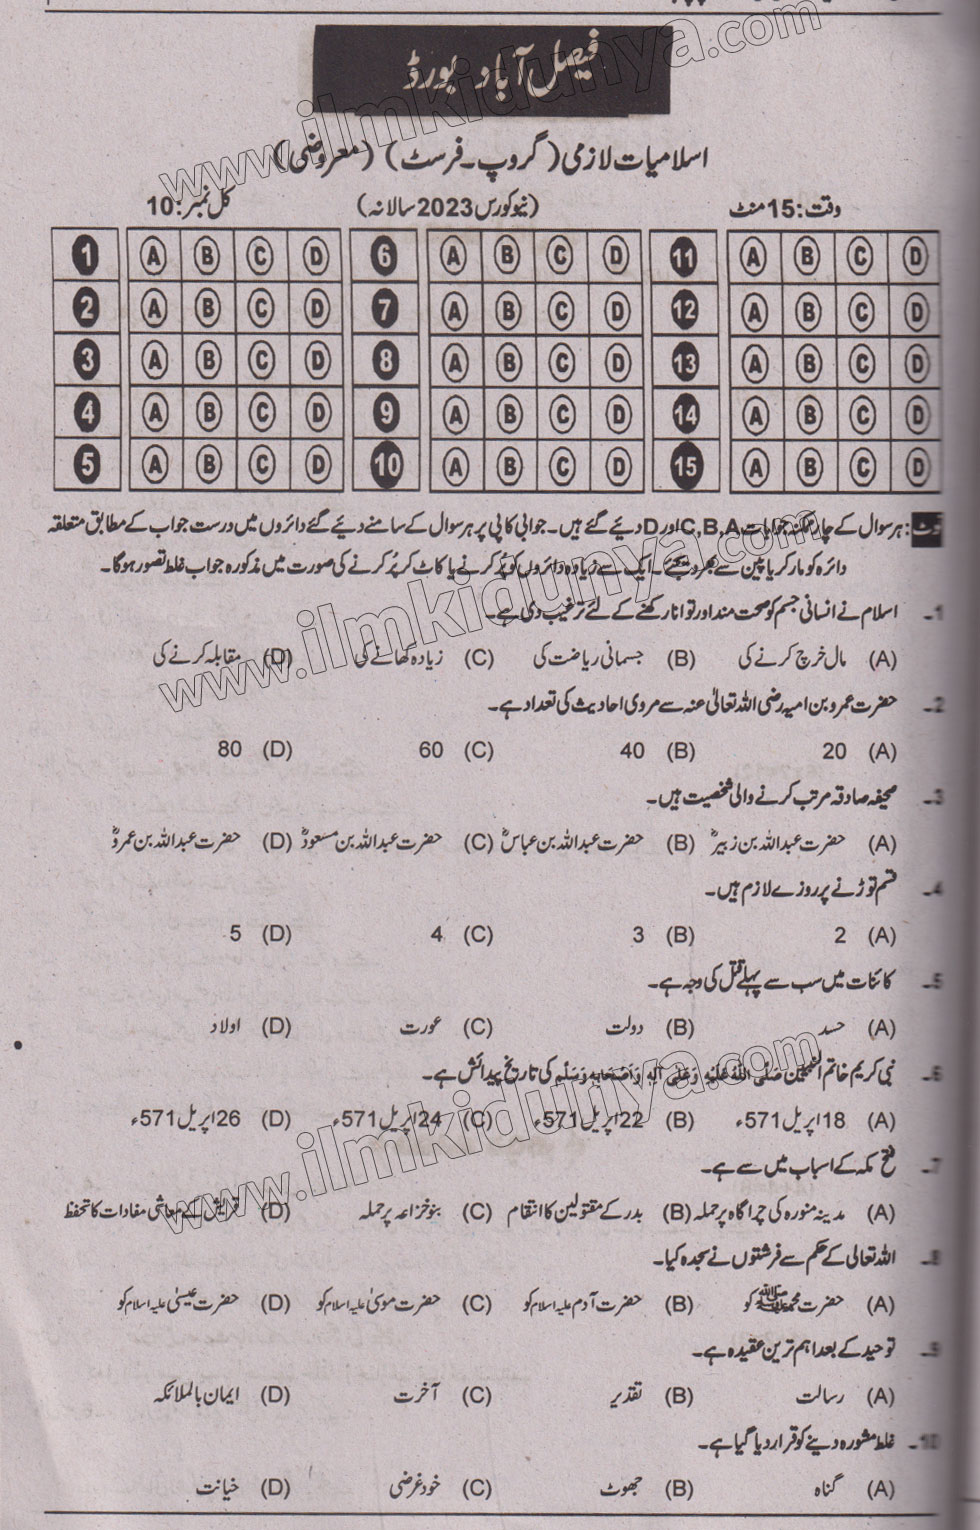 فیصل آباد بورڈ
اسلامیات لازمی (گروپ۔فرسٹ) (معروضی)
وقت: 15 منٹ (نیو کورس 2023 سالانہ) کل نمبر: 10
1 A B C D 6 A B C D 11 A B C D
2 A B C D 7 A B C D 12 A B C D
3 A B C D 8 A B C D 13 A B C D
4 A B C D 9 A B C D 14 A B C D
5 A B C D 10 A B C D 15 A B C D
نوٹ: ہر سوال کے چار ممکنہ جوابات C,B,A اور D دیئے گئے ہیں۔ جوابی کاپی پر ہر سوال کے سامنے دیئے گئے دائروں میں درست جواب کے مطابق متعلقہ
دائرہ کو مارکر یا پین سے بھر دیجئے۔ ایک سے زیادہ دائروں کو پُر کرنے یا کاٹ کر پُر کرنے کی صورت میں مذکورہ جواب غلط تصور ہوگا۔
1۔ اسلام نے انسانی جسم کو صحت مند اور توانا رکھنے کے لئے ترغیب دی ہے۔
(A) مال خرچ کرنے کی (B) جسمانی ریاضت کی (C) زیادہ کھانے کی (D) مقابلہ کرنے کی
2۔ حضرت عمرو بن امیہ رضی اللہ تعالیٰ عنہ سے مروی احادیث کی تعداد ہے۔
(A) 20 (B) 40 (C) 60 (D) 80
3۔ صحیفہ صادقہ مرتب کرنے والی شخصیت ہیں۔
(A) حضرت عبداللہ بن زبیرؓ (B) حضرت عبداللہ بن عباسؓ (C) حضرت عبداللہ بن مسعودؓ (D) حضرت عبداللہ بن عمروؓ
4۔ قسم توڑنے پر روزے لازم ہیں۔
(A) 2 (B) 3 (C) 4 (D) 5
5۔ کائنات میں سب سے پہلے قتل کی وجہ ہے۔
(A) حسد (B) دولت (C) عورت (D) اولاد
6۔ نبی کریم خاتم النبیین صَلَّی اللہُ عَلَیْہِ وَعَلٰی آلِہٖ وَاَصْحَابِہٖ وَسَلَّم کی تاریخ پیدائش ہے۔
(A) 18 اپریل 571ء (B) 22 اپریل 571ء (C) 24 اپریل 571ء (D) 26 اپریل 571ء
7۔ فتح مکہ کے اسباب میں سے ہے۔
(A) مدینہ منورہ کی چراگاہ پر حملہ (B) بدر کے مقتولین کا انتقام (C) بنو خزاعہ پر حملہ (D) قریش کے معاشی مفادات کا تحفظ
8۔ اللہ تعالیٰ کے حکم سے فرشتوں نے سجدہ کیا۔
(A) حضرت محمد ﷺ کو (B) حضرت آدم علیہ السلام کو (C) حضرت موسیٰ علیہ السلام کو (D) حضرت عیسیٰ علیہ السلام کو
9۔ توحید کے بعد اہم ترین عقیدہ ہے۔
(A) رسالت (B) تقدیر (C) آخرت (D) ایمان بالملائکہ
10۔ غلط مشورہ دینے کو قرار دیا گیا ہے۔
(A) گناہ (B) جھوٹ (C) خود غرضی (D) خیانت
www.ilmkidunya.com
www.ilmkidunya.com
www.ilmkidunya.com